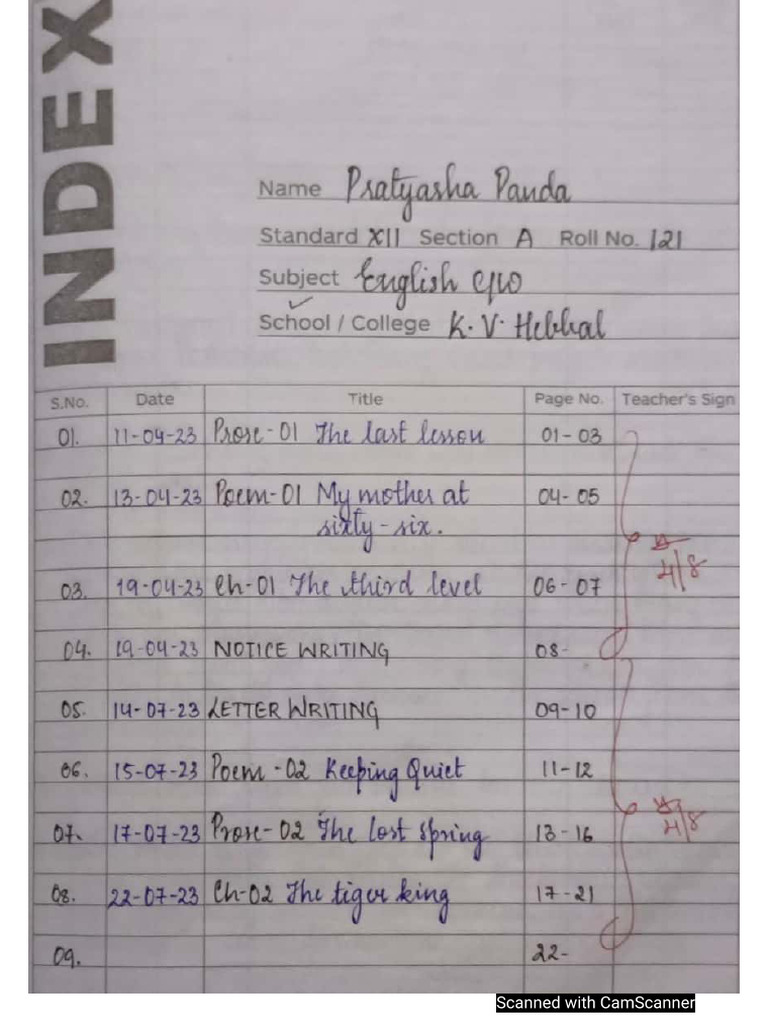 INDEX
Name Pratyasha Panda
Standard XII Section A Roll No. 121
Subject English C/W
School / College K.V. Hebbal
S.No. Date Title Page No. Teacher's Sign
01. 11-04-23 Prose-01 The last lesson 01-03
02. 13-04-23 Poem-01 My mother at 04-05
sixty-six.
4/8
03. 19-04-23 Ch-01 The third level 06-07
04. 19-04-23 NOTICE WRITING 08-
05. 14-07-23 LETTER WRITING 09-10
06. 15-07-23 Poem-02 Keeping Quiet 11-12
07. 17-07-23 Prose-02 The lost spring 13-16
4/8
08. 22-07-23 Ch-02 The tiger king 17-21
09. 22-
Scanned with CamScanner